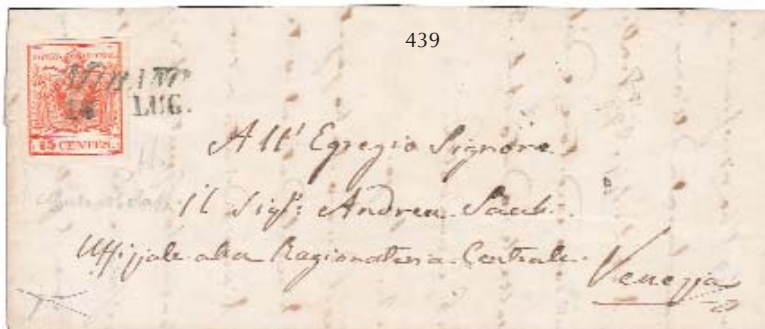 439
LUG.
15 CENTES.
All' Egregio Signore
il Sigr: Andrea
Uffiziale alla Ragionateria Centrale
Venezia